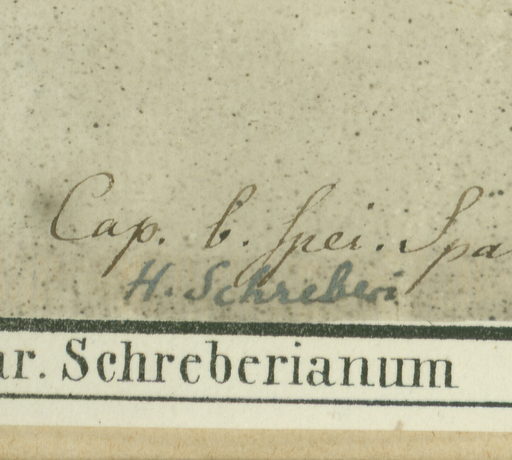 Cap. b. spei. Spa
H. Schreberi
ar. Schreberianum